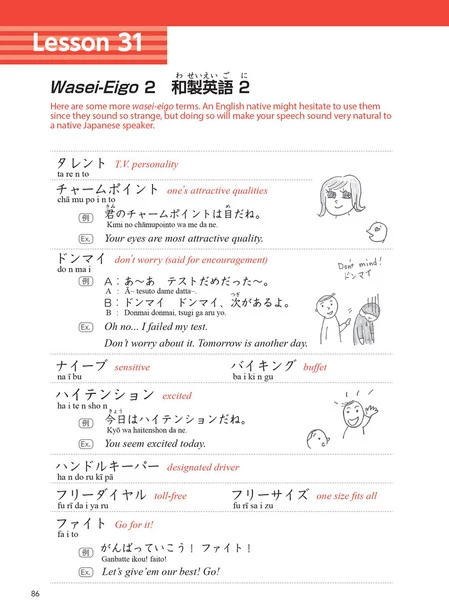 Lesson 31
わ せいえい ご に
Wasei-Eigo 2 和製英語 2
Here are some more wasei-eigo terms. An English native might hesitate to use them
since they sound so strange, but doing so will make your speech sound very natural to
a native Japanese speaker.
タレント T.V. personality
ta re n to
チャームポイント one's attractive qualities
chā mu po i n to
きみ め
例 君のチャームポイントは目だね。
Kimi no chāmupointo wa me da ne.
Ex. Your eyes are most attractive quality.
ドンマイ don't worry (said for encouragement)
do n ma i
例 A：あ〜あ テストだめだった〜。
A : Ā– tesuto dame datta–.
つぎ
B：ドンマイ ドンマイ、次があるよ。
B : Donmai donmai, tsugi ga aru yo.
Ex. Oh no... I failed my test.
Don't worry about it. Tomorrow is another day.
Don't mind!
ドンマイ
ナイーブ sensitive バイキング buffet
na ī bu ba i ki n gu
ハイテンション excited
ha i te n sho n
きょう
例 今日はハイテンションだね。
Kyō wa haitenshon da ne.
Ex. You seem excited today.
ハンドルキーパー designated driver
ha n do ru kī pā
フリーダイヤル toll-free フリーサイズ one size fits all
fu rī da i ya ru fu rī sa i zu
ファイト Go for it!
fa i to
例 がんばっていこう！ ファイト！
Ganbatte ikou! faito!
Ex. Let's give'em our best! Go!
86